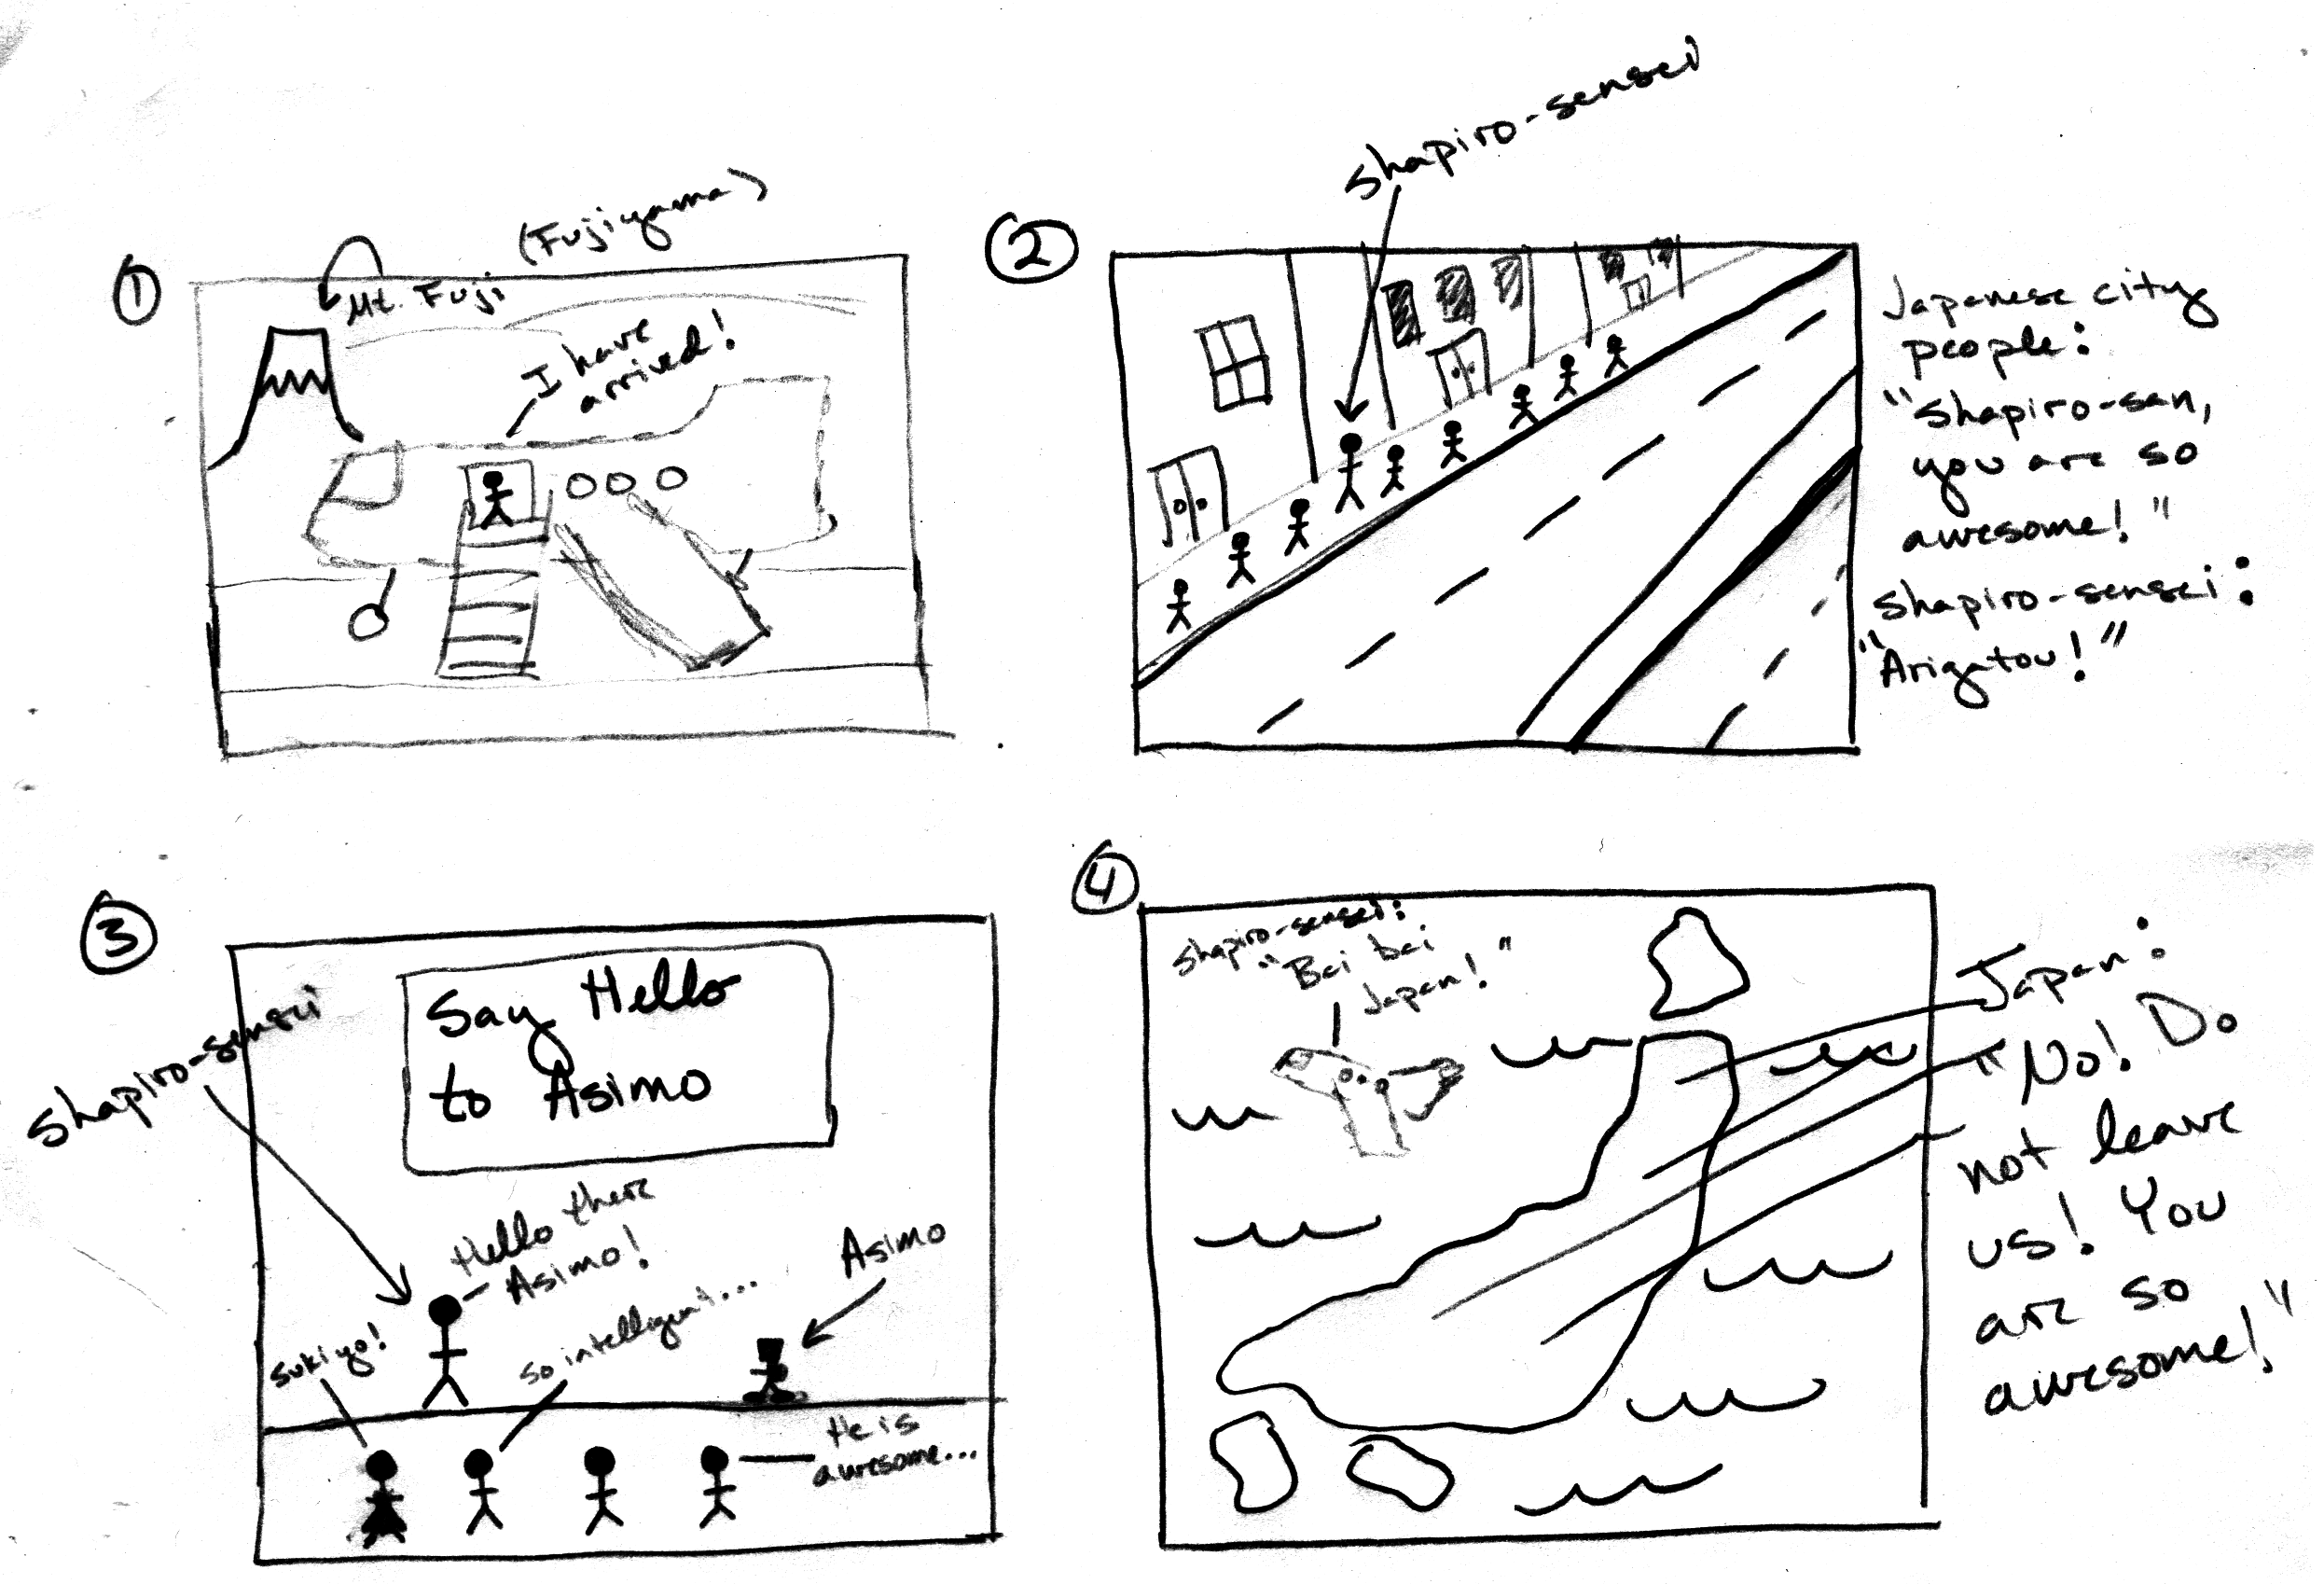 ①
(Fujiyama)
Mt. Fuji
I have
arrived!
②
Shapiro-sensei
Japanese city
people:
"Shapiro-san,
you are so
awesome!"
Shapiro-sensei:
"Arigatou!"
③
Shapiro-sensei
Say Hello
to Asimo
Hello there
Asimo!
Asimo
suki yo!
so intelligent...
He is
awesome...
④
Shapiro-sensei:
"Bai bai
Japan!"
Japan:
"No! Do
not leave
us! You
are so
awesome!"